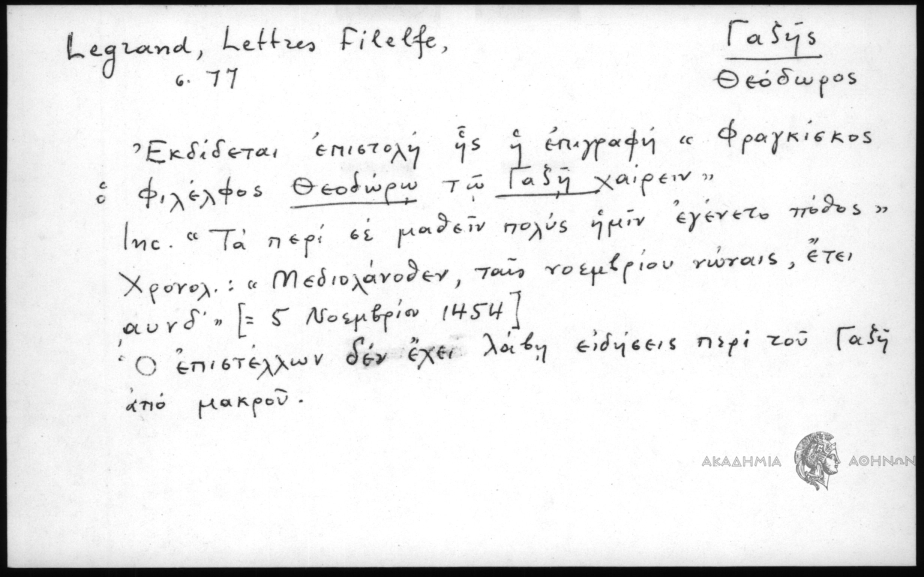 Legrand, Lettres Filelfe,
Γαζῆς
σ. 77
Θεόδωρος
Ἐκδίδεται ἐπιστολή ἧς ἡ ἐπιγραφή « Φραγκίσκος
ὁ Φιλέλφος Θεοδώρῳ τῷ Γαζῇ χαίρειν »
Inc. « Τά περί σέ μαθεῖν πολύς ἡμῖν ἐγένετο πόθος »
Χρονολ.: « Μεδιολάνοθεν, ταῖς νοεμβρίου νώναις, ἔτει
͵αυνδ´ » [= 5 Νοεμβρίου 1454]
Ὁ ἐπιστέλλων δέν ἔχει λάβῃ εἰδήσεις περί τοῦ Γαζῆ
ἀπό μακροῦ.
ΑΚΑΔΗΜΙΑ ΑΘΗΝΩΝ